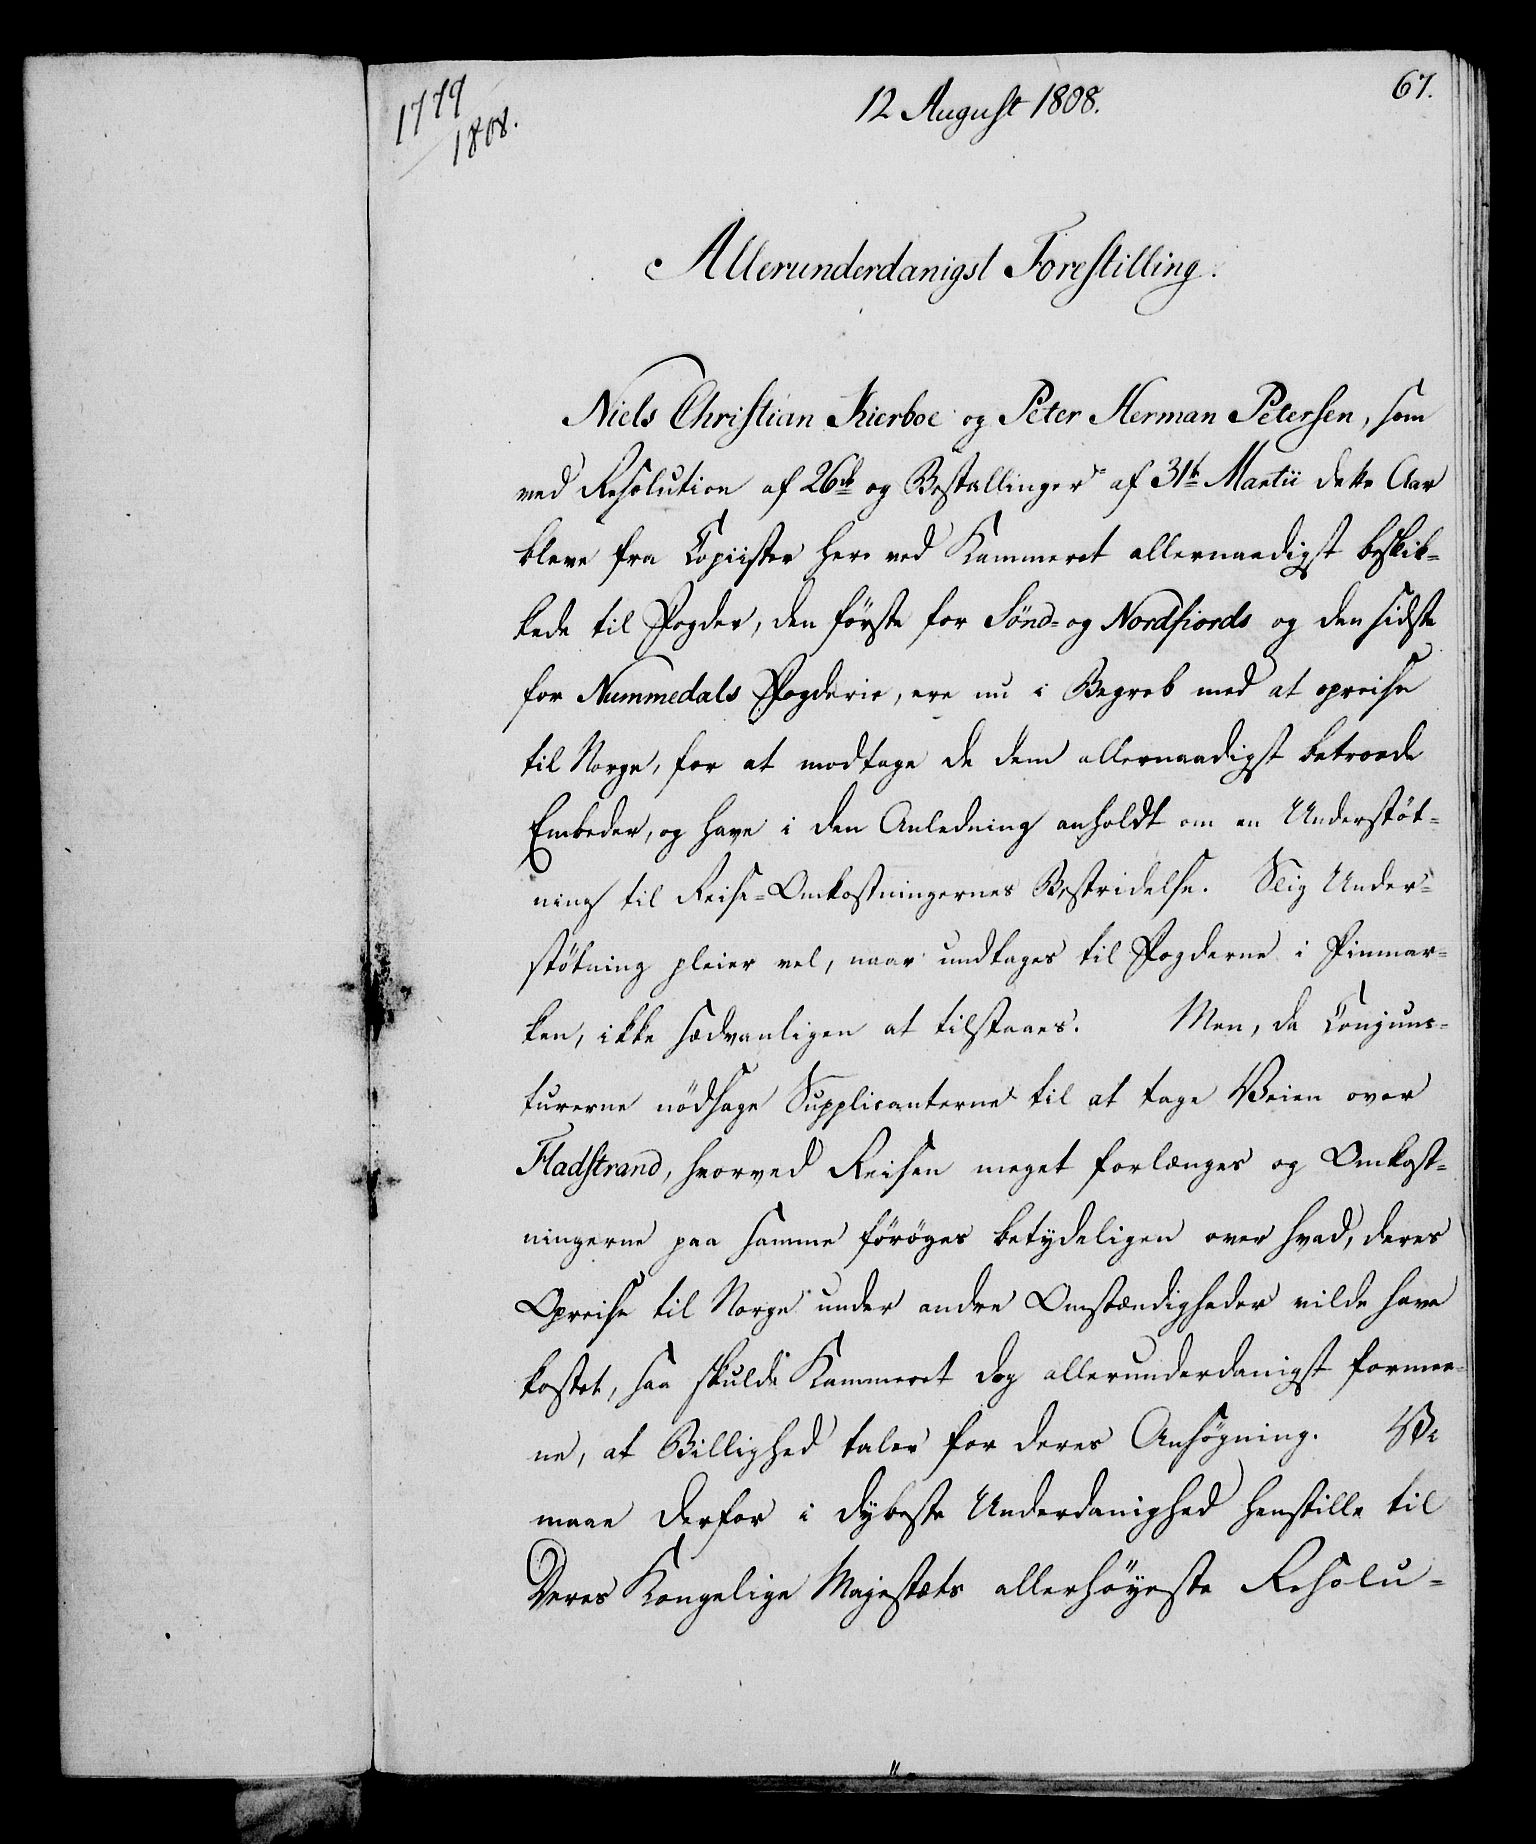 1779
1808.
12 August 1808.
67.
Allerunderdanigst Forestilling.
Niels Christian Kierboe og Peter Herman Petersen, som
ved Resolution af 26de og Bestallinger af 31te Martii dette Aar
bleve fra Copiister her ved Kammeret allernaadigst beskik-
kede til Fogder, den förste for Sönd- og Nordfiords og den sidste
for Nummedals Fogderie, ere nu i Begreb med at opreise
til Norge, for at modtage de dem allernaadigst betroede
Embeder, og have i den Anledning anholdt om en Understöt-
ning til Reise-Omkostningernes Bestridelse. Slig Under-
stötning pleier vel, naar undtages til Fogderne i Finmar-
ken, ikke sædvanligen at tilstaaes. Men, da Conjunc-
turerne nödsage Supplicanterne til at tage Veien over
Fladstrand, hvorved Reisen meget forlænges og Omkost-
ningerne paa samme föröges betydeligen over hvad, deres
Opreise til Norge under andre Omstændigheder vilde have
kostet, saa skulde Kammeret dog allerunderdanigst formee-
ne, at Billighed taler for deres Ansögning. Vi
maae derfor i dybeste Underdanighed henstille til
Deres Kongelige Majestæts allerhöyeste Resolu-